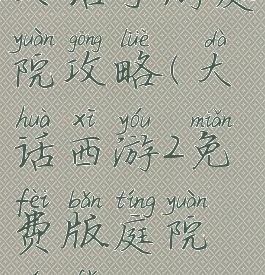 yuàn gōng lüè dà
院攻略(大
huà xī yóu miǎn
话西游2免
fèi bǎn tíng yuàn
费版庭院